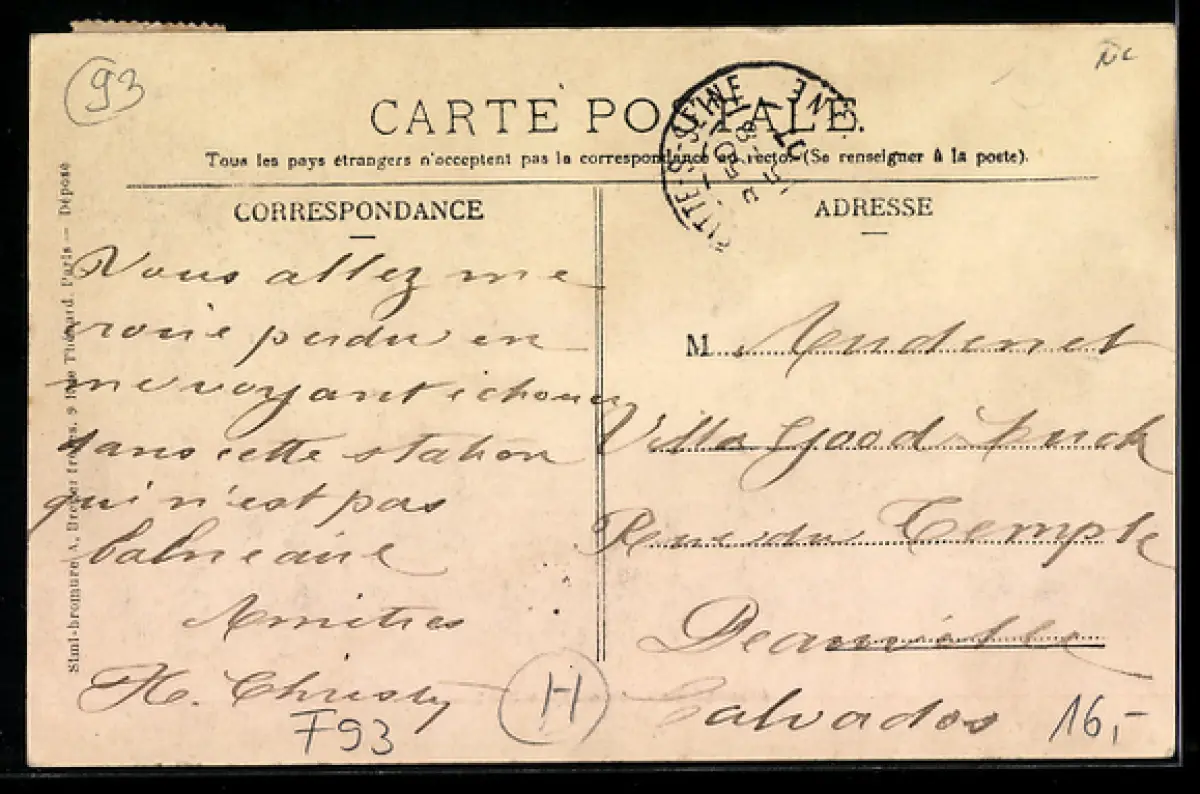 93
CARTE POSTALE.
Tous les pays étrangers n'acceptent pas la correspondance au recto. (Se renseigner à la poste).
CORRESPONDANCE
Vous allez me
croire perdu en
me voyant échouer
dans cette station
qui n'est pas
balnéaire
Amitiés
H. Christy
F93
H
ADRESSE
M. Audenet
Villa Good Luck
Rue du Temple
Deauville
Calvados
16,-
Simi-bromure A. Breger frères, 9 Paris — Déposé